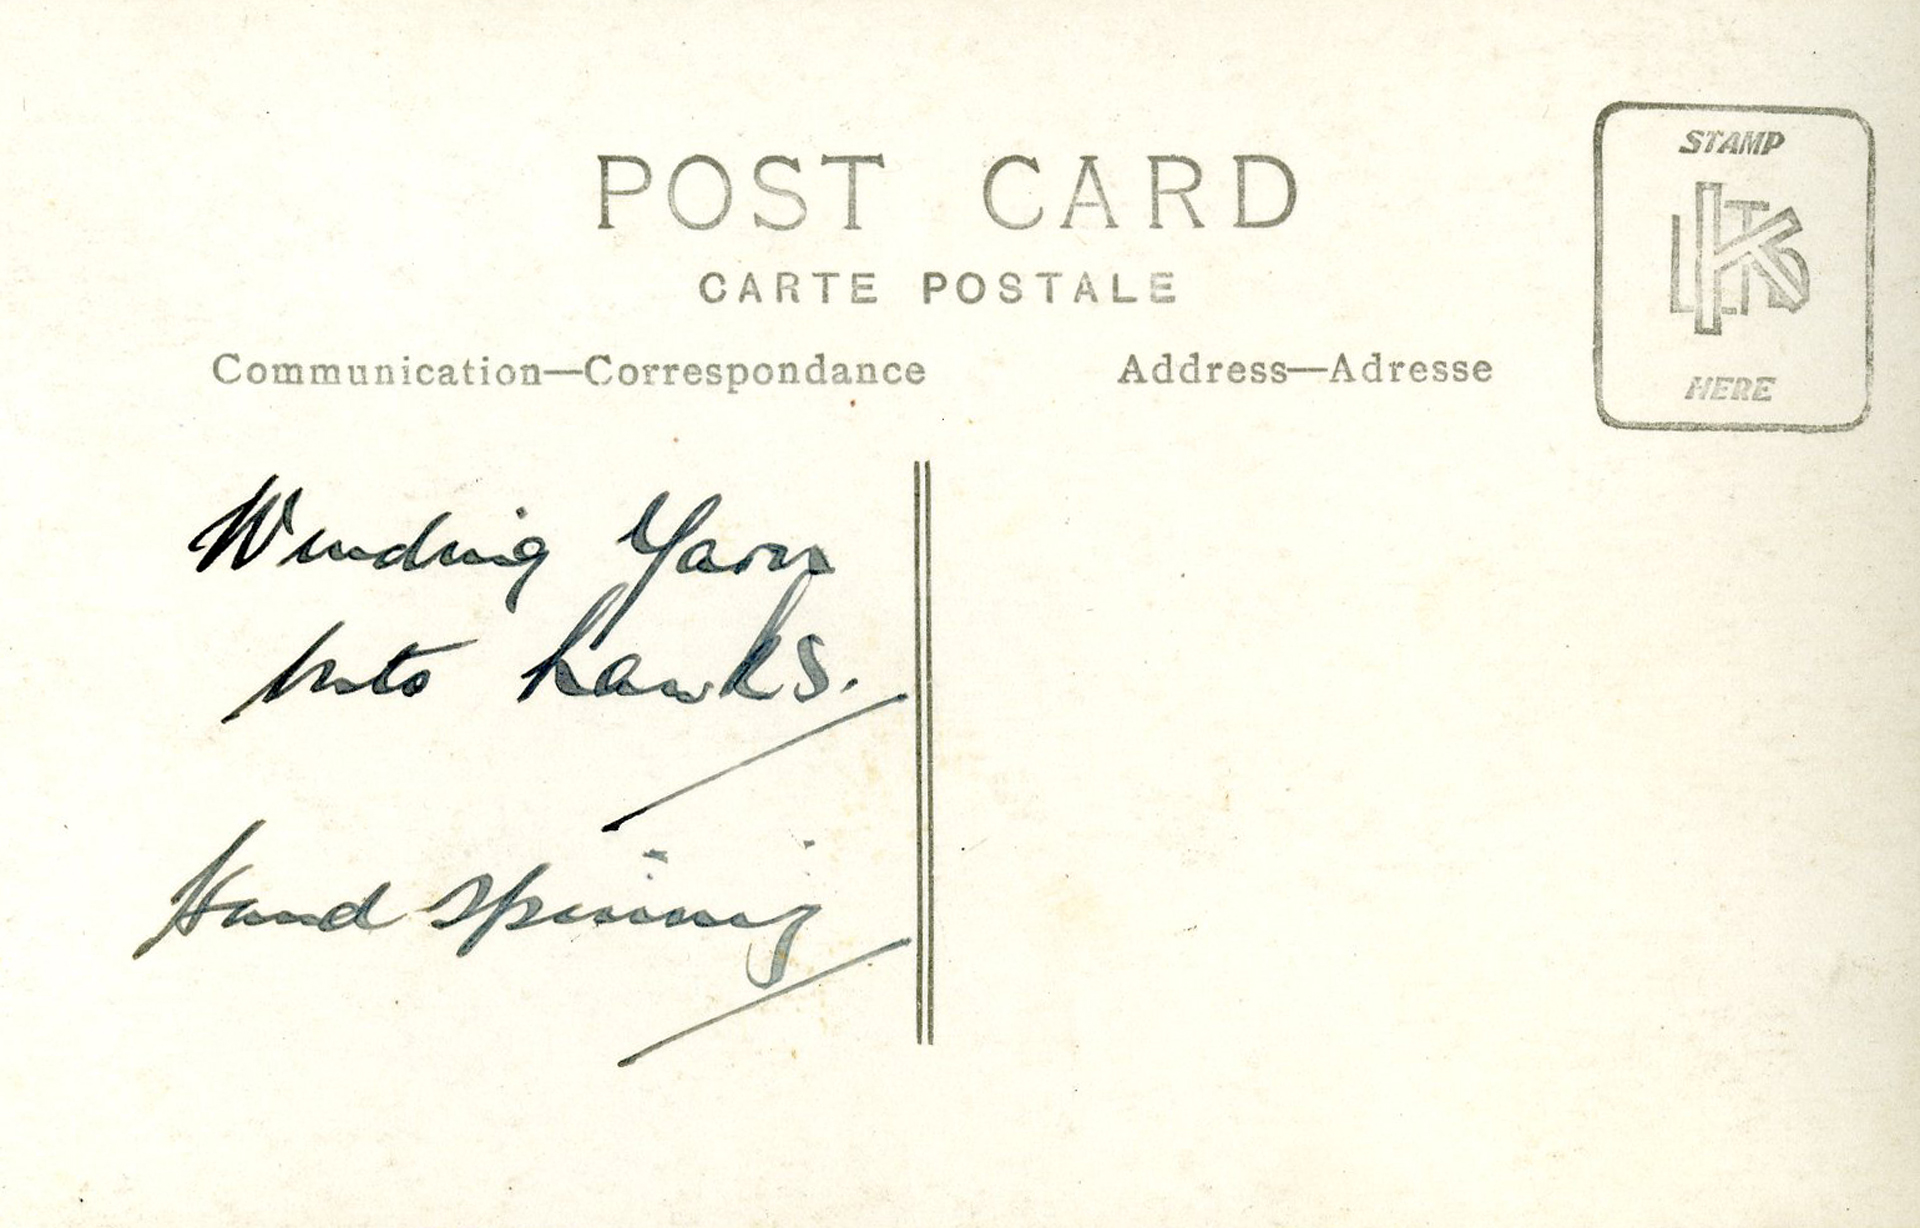 POST CARD
CARTE POSTALE
Communication—Correspondance
Address—Adresse
STAMP
K LTD
HERE
Winding Yarn
into hanks.
Hand spinning